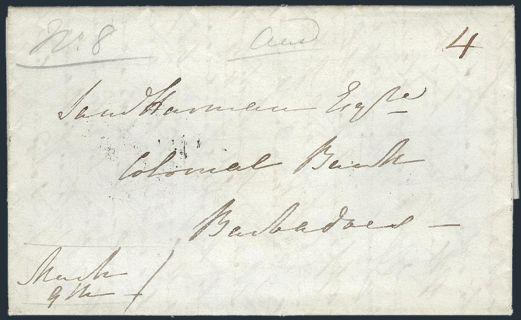 No. 8
4
Saml Harman Esqre
Colonial Bank
Barbadoes
March
9th